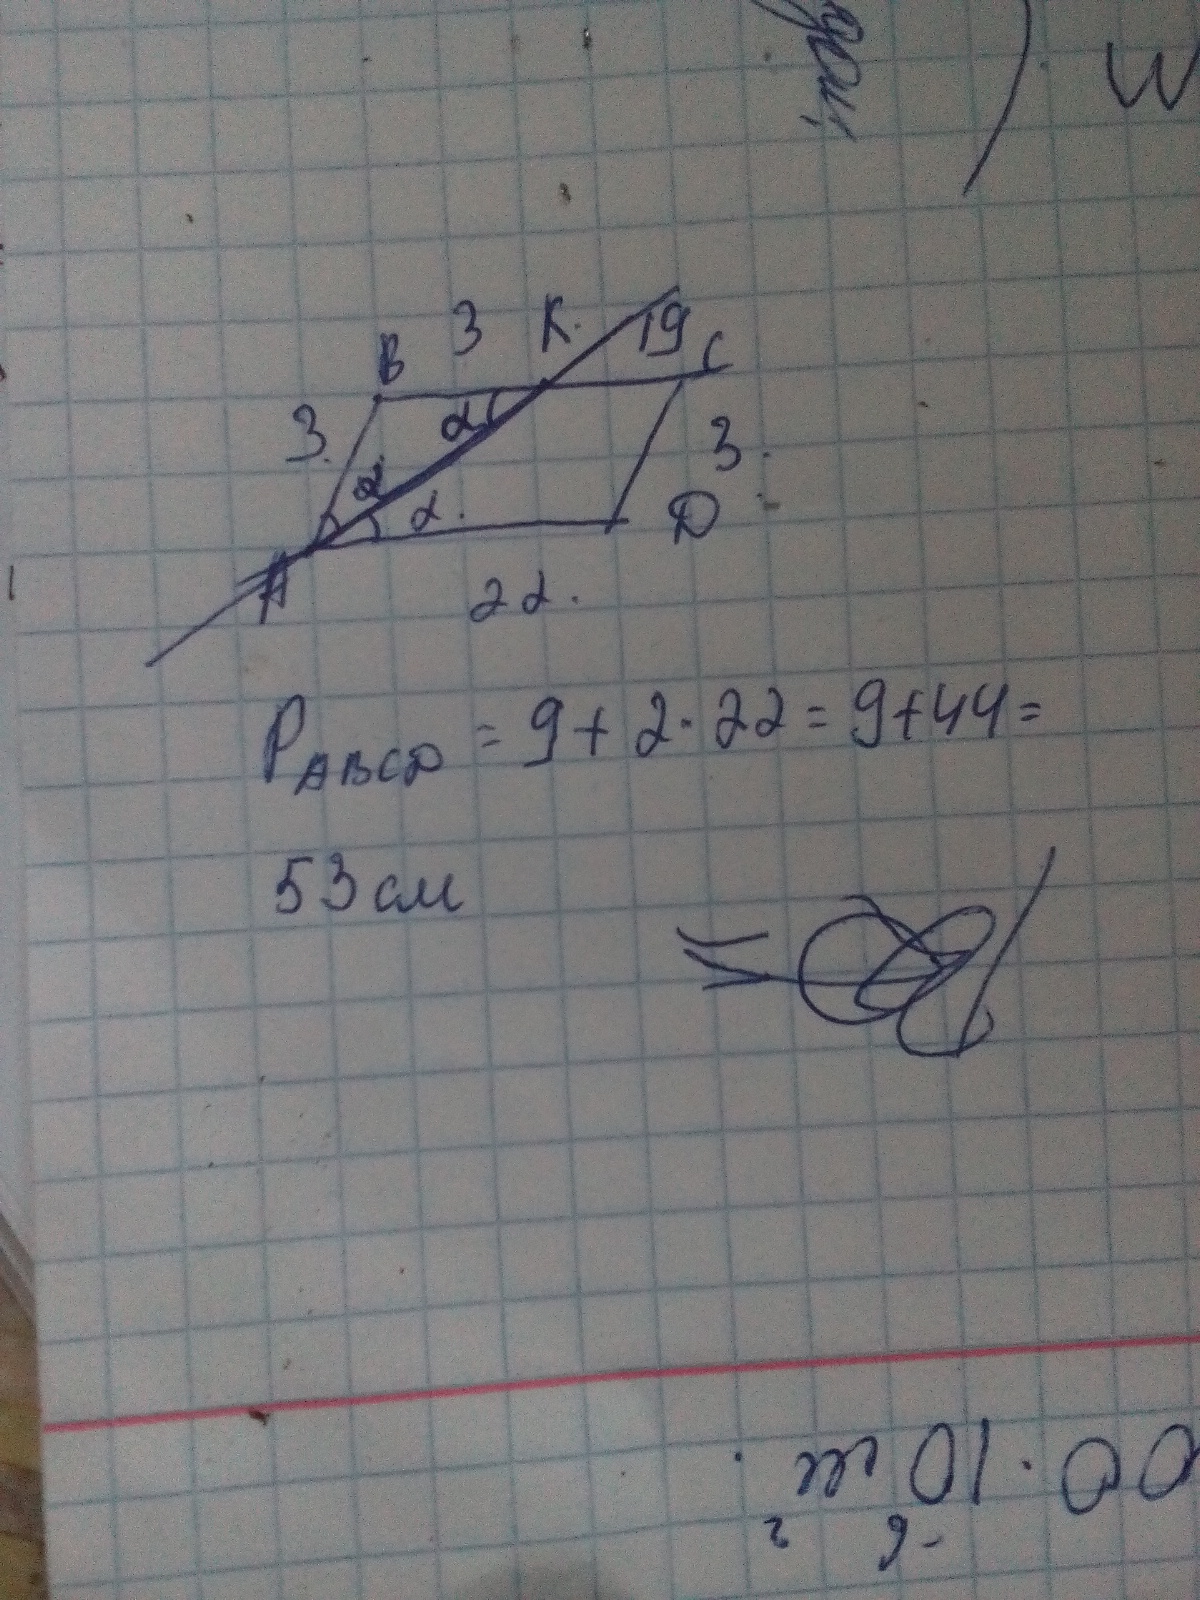 B 3 K. 19 C
3. α
α α. 3.
A D
22.
P ABCD = 9 + 2 · 22 = 9 + 44 =
53 см
=
00 · 10 м.
-6 2